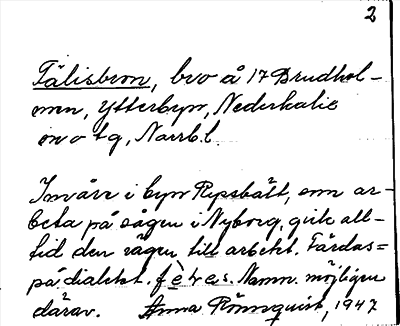 2
Fälisbron, bro å 17 Brudhol-
men, Ytterbyn, Nederkalix
sn o tg, Norrb.l.
Invånr i byn Repsbält, som ar-
beta på sågen i Nyborg, gick all-
tid den vägen till arbetet. Färdas=
på dialekt. Namn. möjligen
därav. Anna Rönnquist, 1947